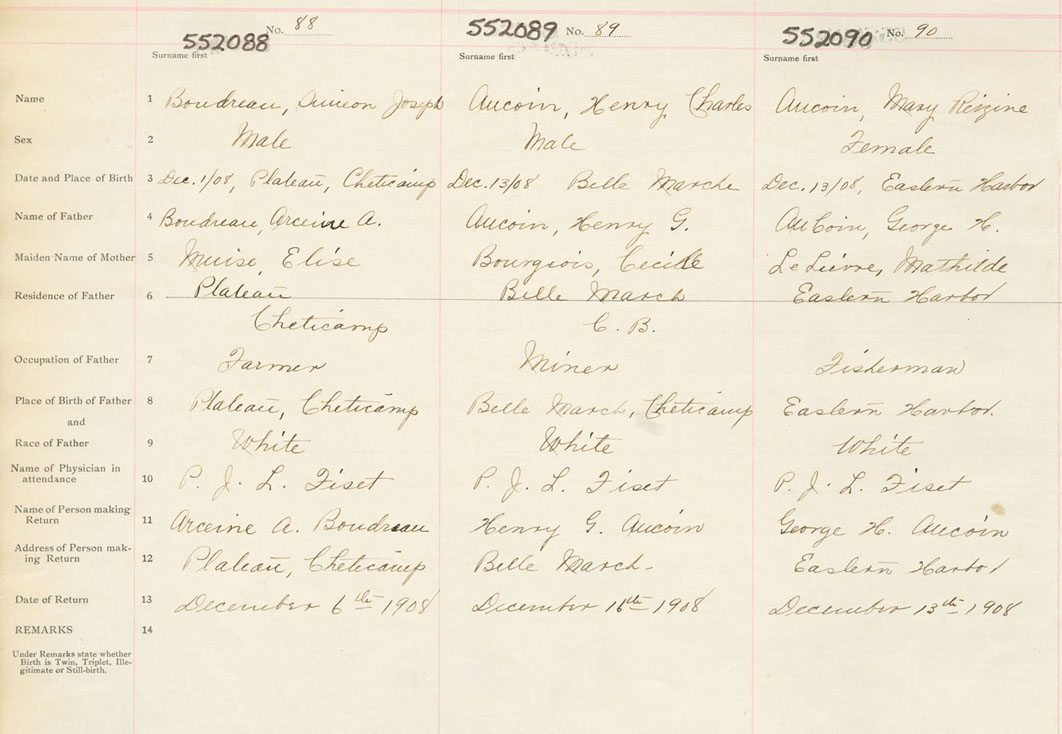 No. 88 No. 89 No. 90
552088 552089 552090
Surname first Surname first Surname first
Name 1 Boudreau, Simeon Joseph Aucoin, Henry Charles Aucoin, Mary
Sex 2 Male Male Female
Date and Place of Birth 3 Dec. 1/08, Plateau, Cheticamp Dec. 13/08 Belle Marche Dec. 13/08, Eastern Harbor
Name of Father 4 Boudreau, Arceine A. Aucoin, Henry G. AuCoin, George H.
Maiden Name of Mother 5 Muise, Elise Bourgeois, Cecile Le Lievre, Mathilde
Residence of Father 6 Plateau Belle March Eastern Harbor
Cheticamp C. B.
Occupation of Father 7 Farmer Miner Fisherman
Place of Birth of Father 8 Plateau, Cheticamp Belle March, Cheticamp Eastern Harbor.
and
Race of Father 9 White White White
Name of Physician in
attendance 10 P. J. L. Fiset P. J. L. Fiset P. J. L. Fiset
Name of Person making
Return 11 Arceine A. Boudreau Henry G. Aucoin George H. Aucoin
Address of Person mak-
ing Return 12 Plateau, Cheticamp Belle March- Eastern Harbor
Date of Return 13 December 6th 1908 December 16th 1908 December 13th 1908
REMARKS 14
Under Remarks state whether
Birth is Twin, Triplet, Ille-
gitimate or Still-birth.